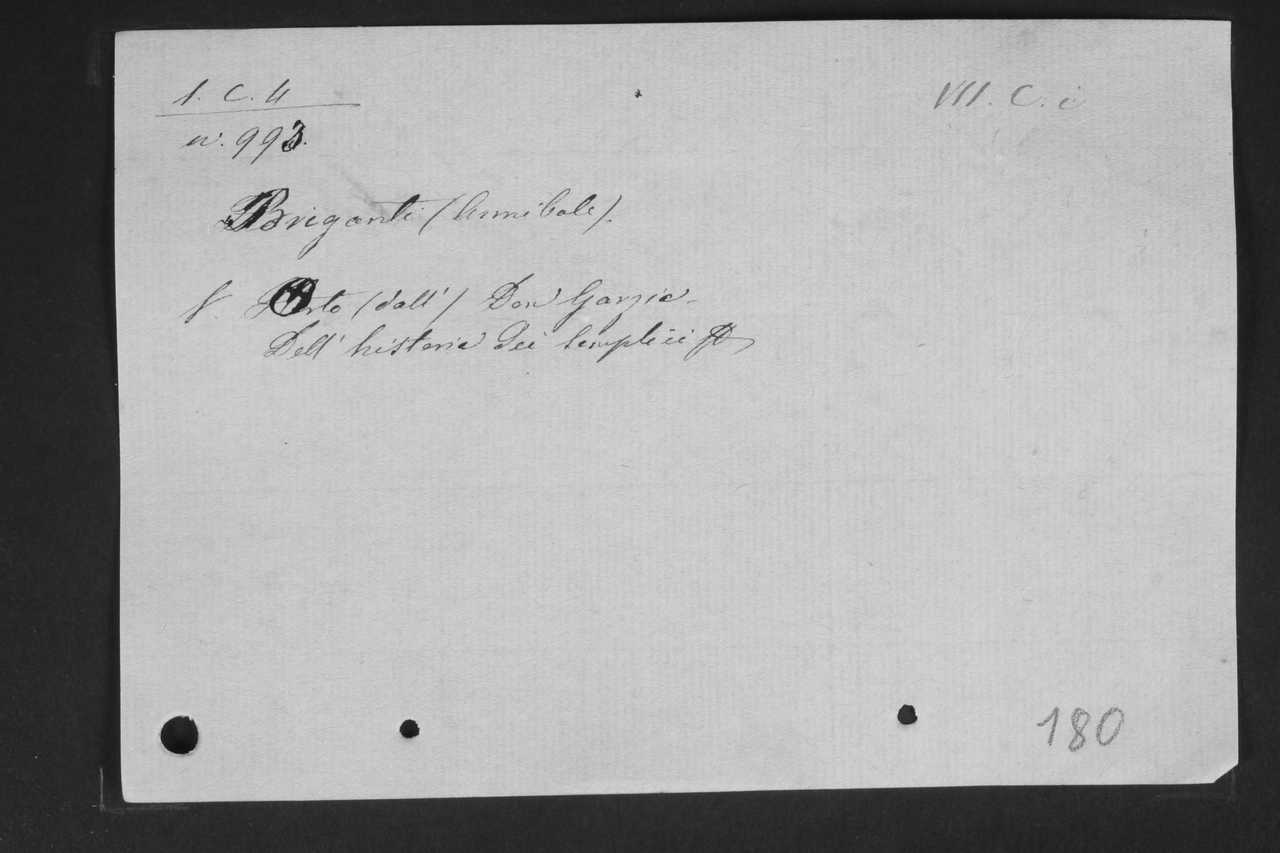 1. C. 4
VII. C. i
n. 993.
Briganti (Annibale).
V. Orto (dall') Don Garzia -
Dell' historia dei semplici
180